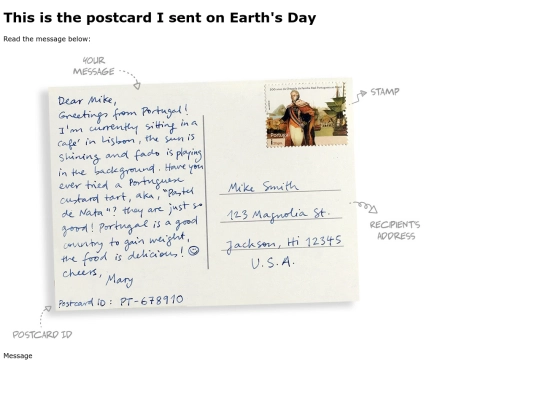 This is the postcard I sent on Earth's Day
Read the message below:
YOUR
MESSAGE
Dear Mike,
Greetings from Portugal!
I'm currently sitting in a
café in Lisbon, the sun is
shining and fado is playing
in the background. Have you
ever tried a Portuguese
custard tart, aka, "Pastel
de Nata"? they are just so
good! Portugal is a good
country to gain weight,
the food is delicious! ☺
cheers,
Mary
Postcard ID: PT-678910
POSTCARD ID
Portugal
STAMP
Mike Smith
123 Magnolia St.
Jackson, Hi 12345
U.S.A.
RECIPIENTS
ADDRESS
Message